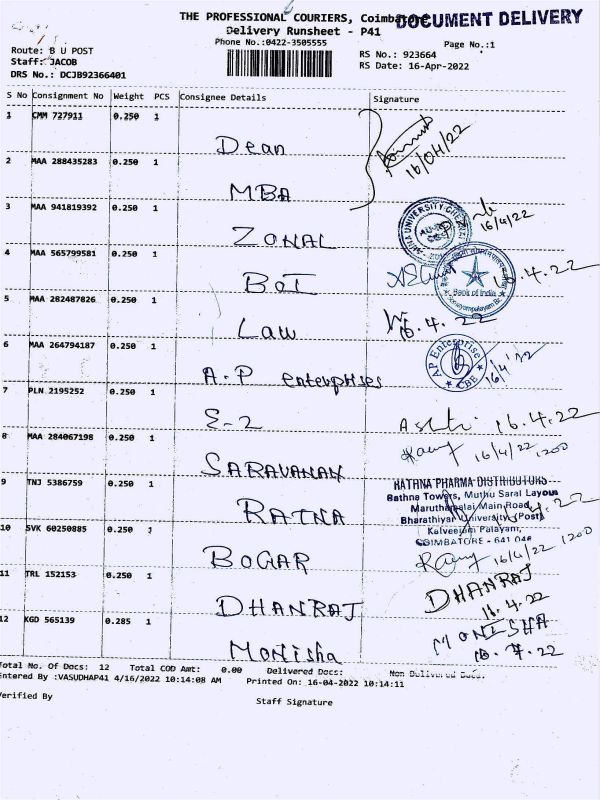 THE PROFESSIONAL COURIERS, Coimbatore
DOCUMENT DELIVERY
Delivery Runsheet - P41
Phone No.:0422-3505555
Page No.:1
Route: B U POST
Staff: JACOB
DRS No.: DCJB92366401
RS No.: 923664
RS Date: 16-Apr-2022
S No Consignment No Weight PCS Consignee Details Signature
1 CMM 727911 0.250 1
Dean 16/04/22
2 MAA 288435283 0.250 1
MBA
3 MAA 941819392 0.250 1
ZONAL 16/4/22
4 MAA 565799581 0.250 1
BOI Bank of India 16.4.22
5 MAA 282487826 0.250 1
Law 16.4.22
6 MAA 264794187 0.250 1
A.P enterprises AP Enterprise CBE 16/4/22
7 PLN 2195252 0.250 1
E-2 16.4.22
8 MAA 284067198 0.250 1
SARAVANAN 16/4/22 1200
9 TNJ 5386759 0.250 1
RATNA
RATHNA PHARMA DISTRIBUTORS
Rathna Towers, Muthu Saral Layout
Maruthamalai Main Road,
Bharathiyar University (Post)
Kalveeram Palayam,
COIMBATORE - 641 046
10 SVK 60250885 0.250 1
BOGAR 16/4/22 1200
11 TRL 152153 0.250 1
DHANRAJ DHANRAJ 16.4.22
12 KGD 565139 0.285 1
Monisha MONISHA 16.4.22
Total No. Of Docs: 12 Total COD Amt: 0.00 Delivered Docs: Non Delivered Docs:
Entered By :VASUDHAP41 4/16/2022 10:14:08 AM Printed On: 16-04-2022 10:14:11
Verified By
Staff Signature